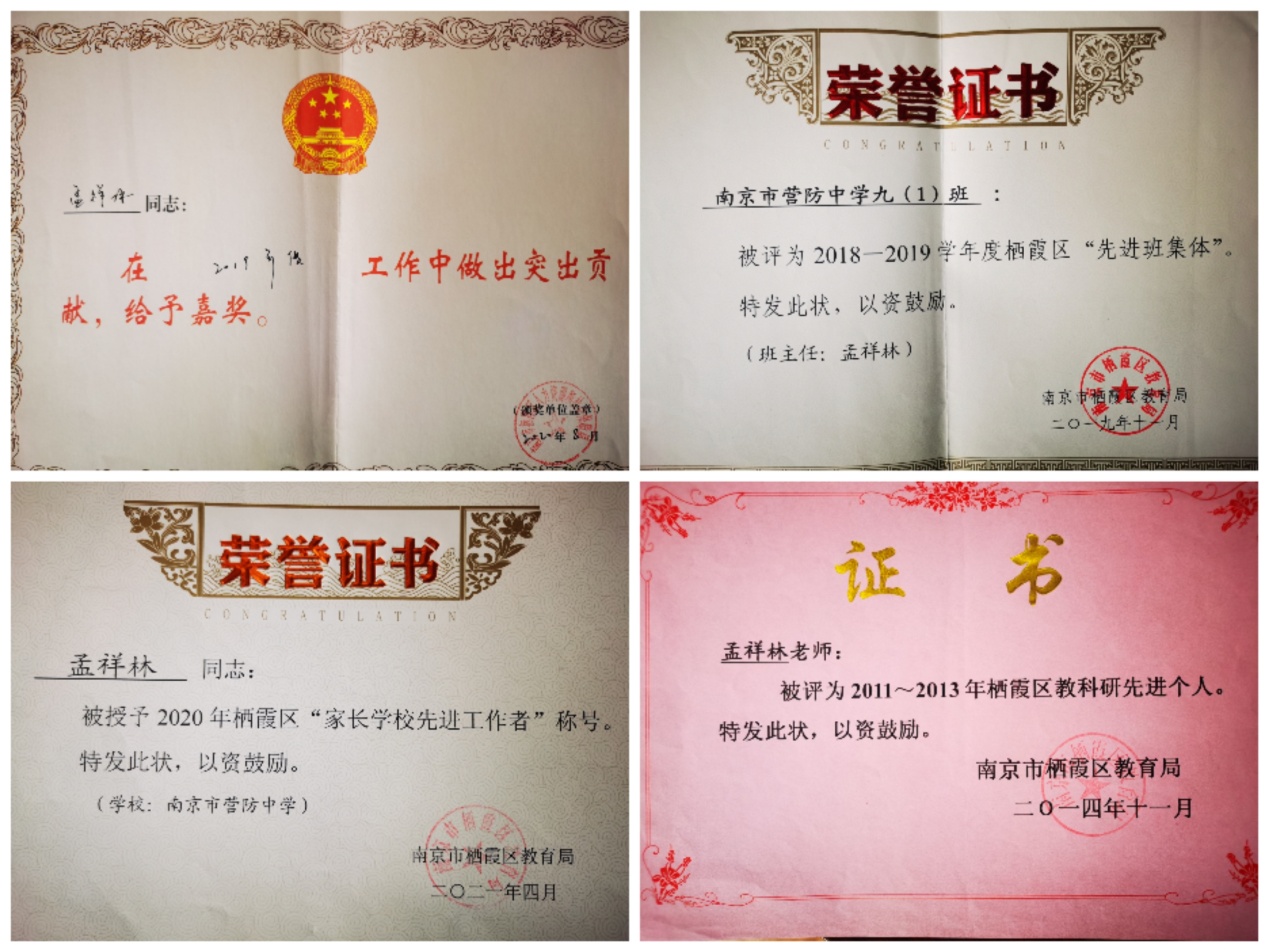 孟祥林 同志：
在 2019年度 工作中做出突出贡
献，给予嘉奖。
（颁奖单位盖章）
2020年8月
荣誉证书
CONGRATULATION
南京市营防中学九（1）班 ：
被评为 2018—2019 学年度栖霞区“先进班集体”。
特发此状，以资鼓励。
（班主任：孟祥林）
南京市栖霞区教育局
二〇一九年十一月
荣誉证书
CONGRATULATION
孟祥林 同志：
被授予 2020 年栖霞区“家长学校先进工作者”称号。
特发此状，以资鼓励。
（学校：南京市营防中学）
南京市栖霞区教育局
二〇二一年四月
证 书
孟祥林老师：
被评为 2011～2013 年栖霞区教科研先进个人。
特发此状，以资鼓励。
南京市栖霞区教育局
二〇一四年十一月